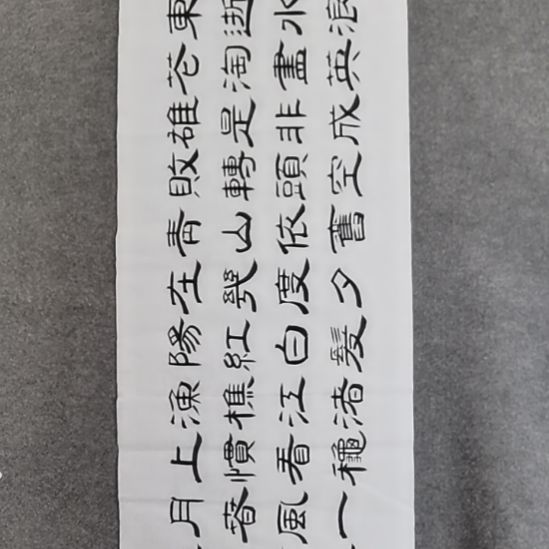 東逝水浪
花淘盡英
雄是非成
敗轉頭空
青山依舊
在幾度夕
陽紅白髮
漁樵江渚
上慣看穐
月春風一